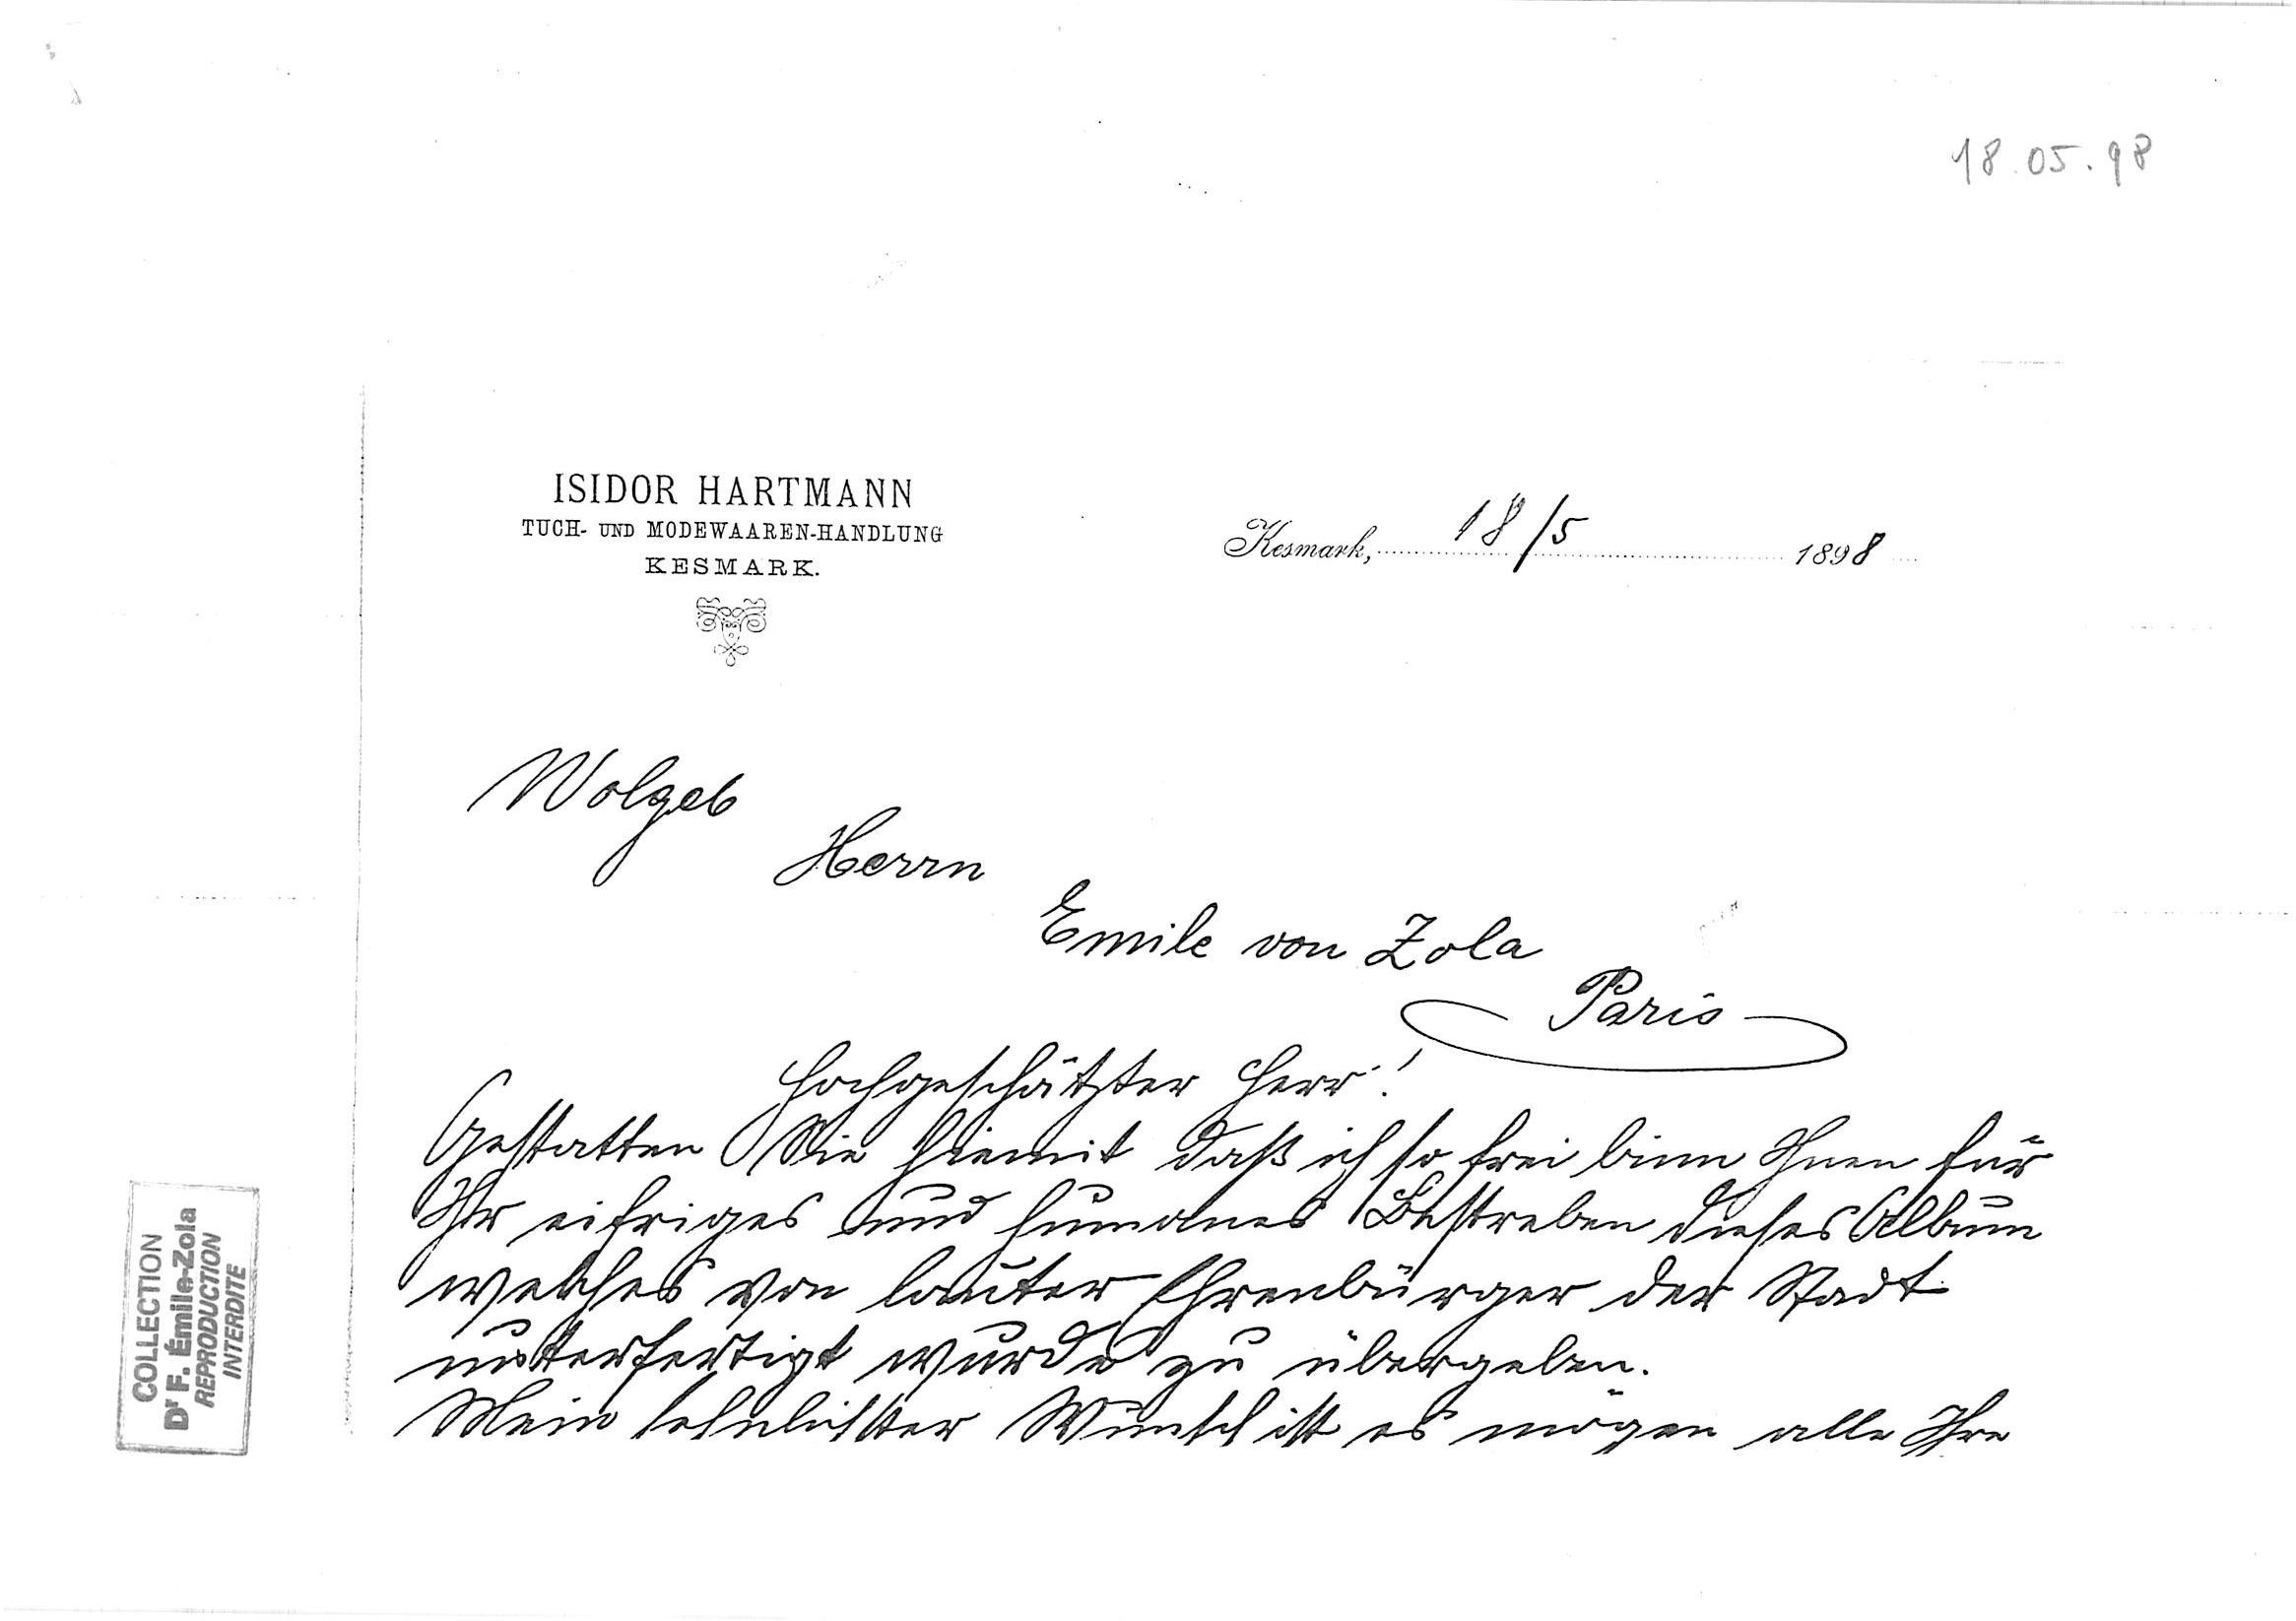 18.05.98
ISIDOR HARTMANN
TUCH- UND MODEWAAREN-HANDLUNG
KESMARK.
Kesmark, 18/5 1898
Wolgeb
Herrn
Emile von Zola
Paris
Hochgeschätzter Herr!
Gestatten Sie hiemit daß ich so frei binn Ihnen für
Ihr eifriges und humanes Bestreben dieses Album
welches von lauter Ehrenbürger der Stadt
unterfertigt wurde zu übergeben.
Mein sehnlichster Wunsch ist es mögen alle Ihre
COLLECTION
Dr F. Émile-Zola
REPRODUCTION
INTERDITE